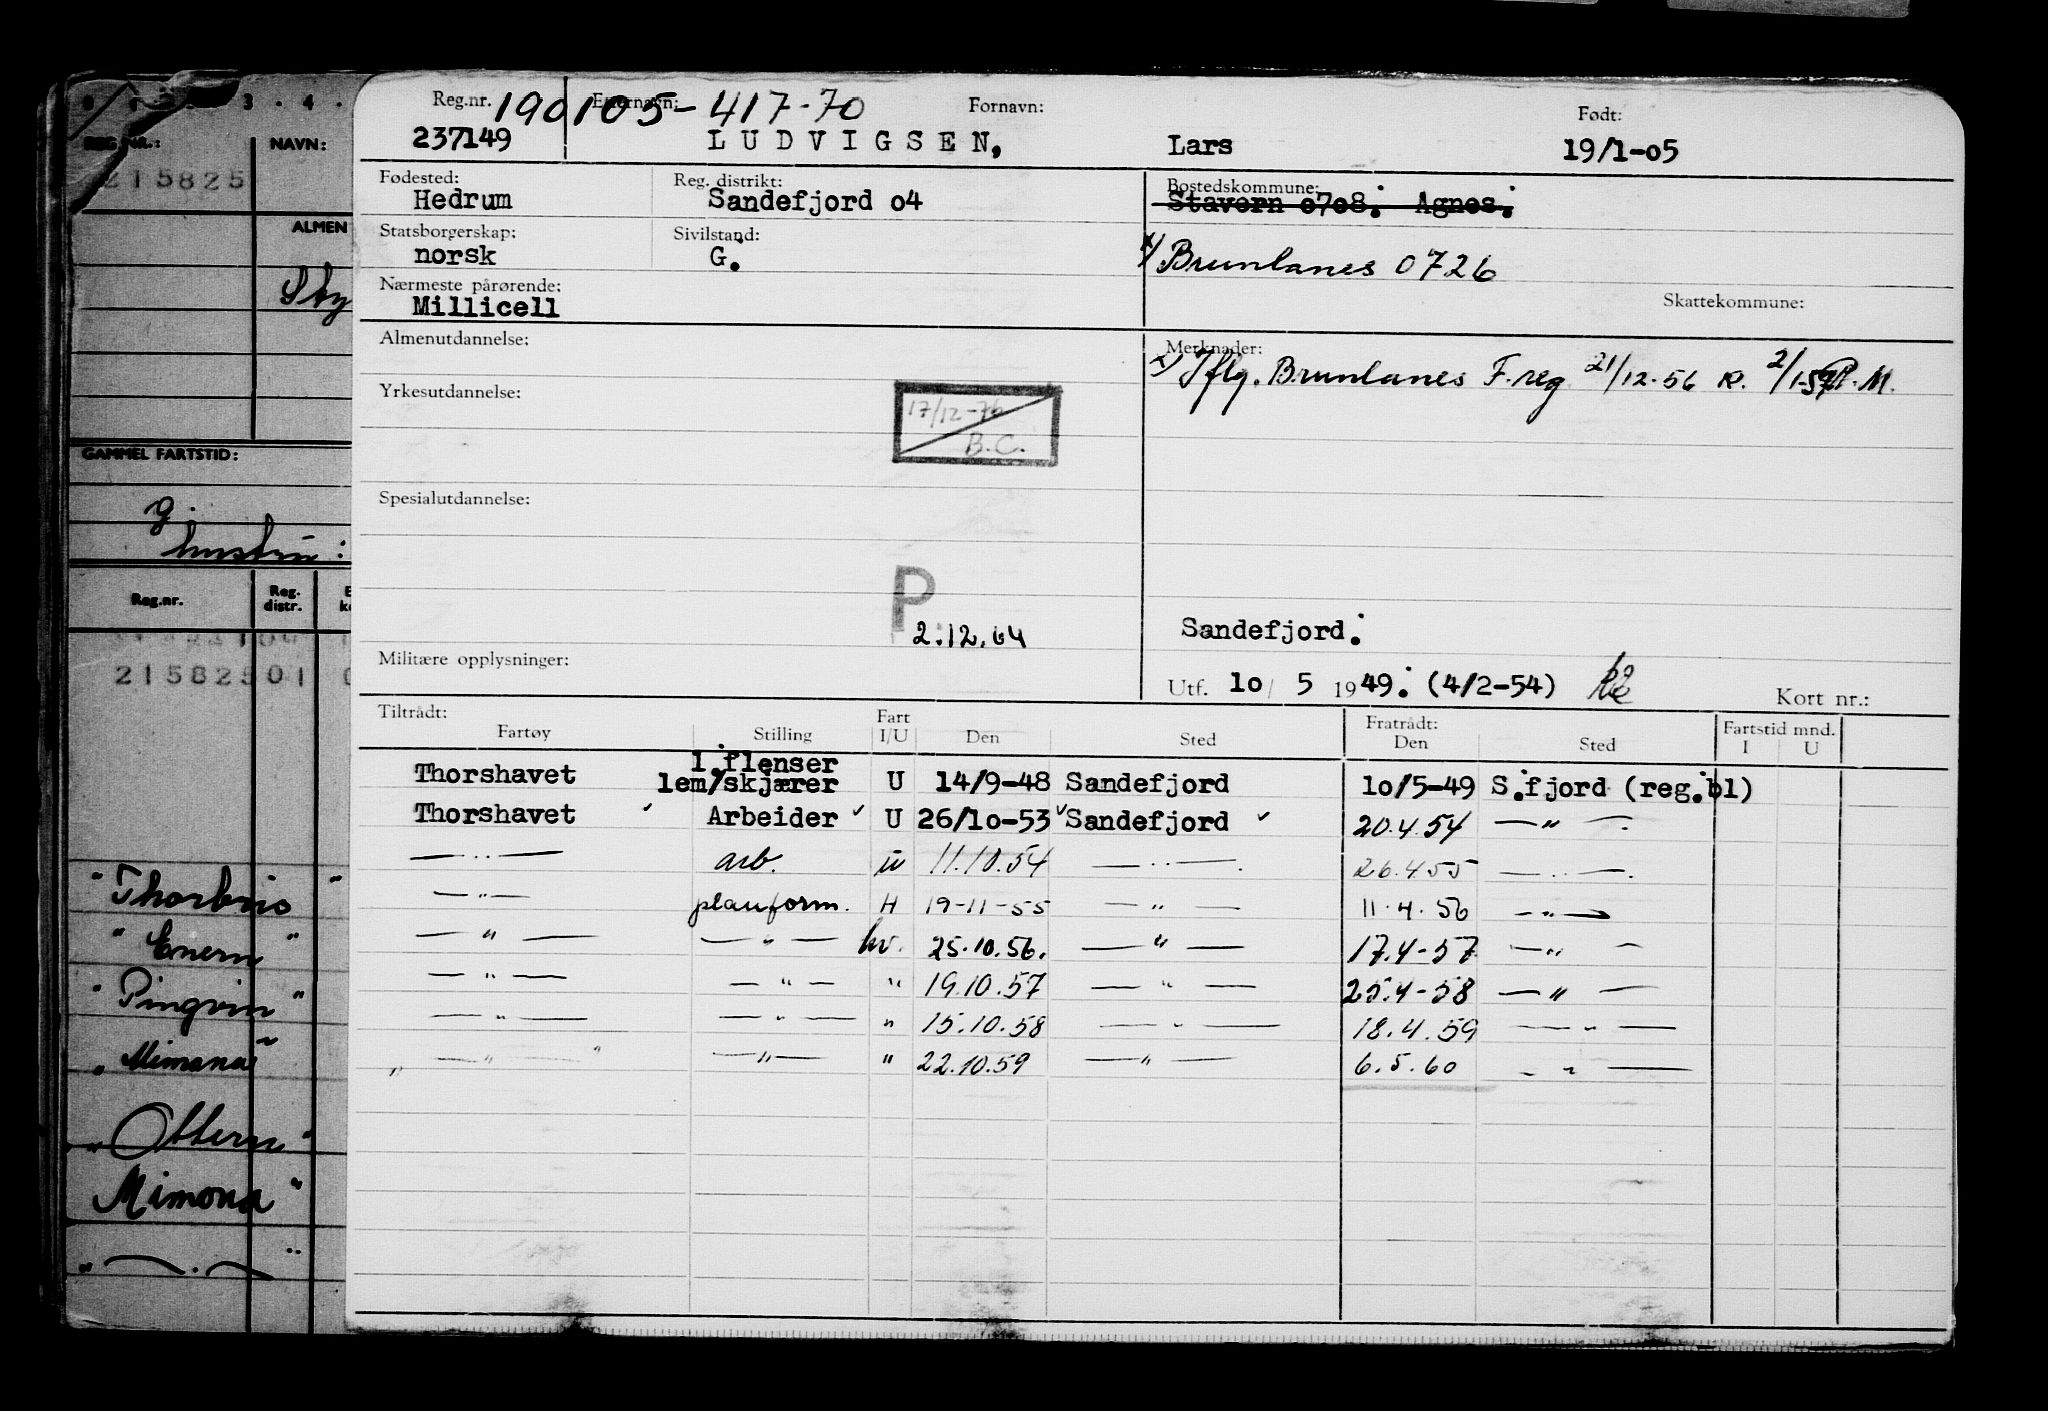 Reg.nr. Etternavn: Fornavn: Født:
190105-417.70
237149 LUDVIGSEN, Lars 19/1-05
Fødested: Reg. distrikt: Bostedskommune:
Hedrum Sandefjord 04 Stavern 0708. Agnes.
Statsborgerskap: Sivilstand:
norsk G. x) Brunlanes 0726
Nærmeste pårørende: Skattekommune:
Millicell
Almenutdannelse: Merknader:
x) Iflg. Brunlanes F.reg 21/12-56 R. 2/1-57 P.M.
Yrkesutdannelse:
17/12-76
B.C.
Spesialutdannelse:
P
2.12.64
Sandefjord.
Militære opplysninger:
Utf. 10/ 5 1949. (4/2-54) Kort nr.:
Tiltrådt: Fart Fratrådt: Fartstid mnd.
Fartøy Stilling I/U Den Sted Den Sted I U
1.flenser
Thorshavet lem/skjærer U 14/9-48 Sandefjord 10/5-49 S.fjord (reg.bl)
Thorshavet ✓ Arbeider ✓ U 26/10-53 ✓ Sandefjord ✓ 20.4.54 — " —
— " — arb. u 11.10.54 — " — 26.4.55 — " —
— " — planform. H 19-11-55 — " — 11.4.56 — " —
— " — — " — hv. 25.10.56. — " — 17.4-57 — " —
— " — — " — " 19.10.57 — " — 25.4-58 — " —
— " — — " — " 15.10.58 — " — 18.4.59 — " —
" — " — — " — " 22.10.59 — " — 6.5.60 — " —
3 . 4 .
REG. NR.: NAVN:
215825
ALMEN
GAMMEL FARTSTID:
g.
hustru:
Reg.nr. Reg. distr.
21582501
"Enern"
"Pingvin"
"Mimona"
"Ottern"
Mimona"